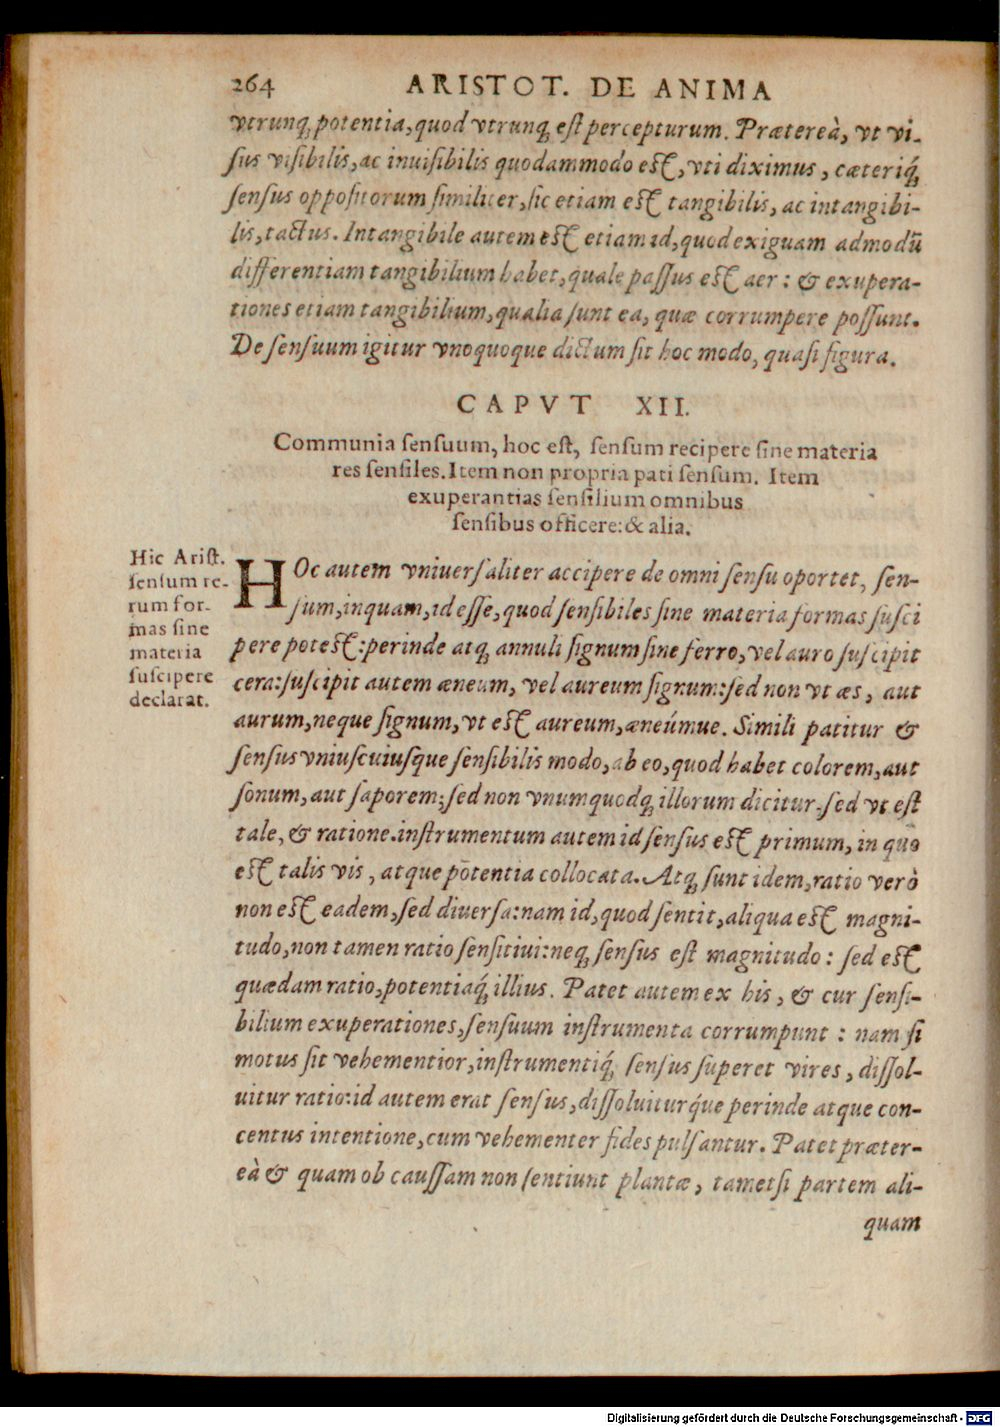 264 ARISTOT. DE ANIMA
vtrunq́; potentia, quod vtrunq; est percepturum. Prætereà, vt vi-
sus visibilis, ac inuisibilis quodammodo est, vti diximus, cæteriq́;
sensus oppositorum similiter, sic etiam est tangibilis, ac intangibi-
lis, tactus. Intangibile autem est etiam id, quod exiguam admodū
differentiam tangibilium habet, quale passus est aer: & exupera-
tiones etiam tangibilium, qualia sunt ea, quæ corrumpere possunt.
De sensuum igitur vnoquoque dictum sit hoc modo, quasi figura.
CAPVT XII.
Communia sensuum, hoc est, sensum recipere sine materia
res sensiles. Item non propria pati sensum. Item
exuperantias sensilium omnibus
sensibus officere: & alia.
Hic Arist.
sensum re-
rum for-
mas sine
materia
suscipere
declarat.
HOc autem vniuersaliter accipere de omni sensu oportet, sen-
sum, inquam, id esse, quod sensibiles sine materia formas susci
pere potest: perinde atq; annuli signum sine ferro, vel auro suscipit
cera: suscipit autem æneum, vel aureum signum: sed non vt æs, aut
aurum, neque signum, vt est aureum, æneúmue. Simili patitur &
sensus vniuscuiusque sensibilis modo, ab eo, quod habet colorem, aut
sonum, aut saporem; sed non vnumquodq; illorum dicitur, sed vt est
tale, & ratione. instrumentum autem id sensus est primum, in quo
est talis vis, atque potentia collocata. Atq; sunt idem, ratio verò
non est eadem, sed diuersa: nam id, quod sentit, aliqua est magni-
tudo, non tamen ratio sensitiui: neq; sensus est magnitudo: sed est
quædam ratio, potentiaq́; illius. Patet autem ex his, & cur sensi-
bilium exuperationes, sensuum instrumenta corrumpunt: nam si
motus sit vehementior, instrumentiq́; sensus superet vires, dissol-
uitur ratio: id autem erat sensus, dissoluiturq́ue perinde atque con-
centus intentione, cum vehementer fides pulsantur. Patet præter-
eà & quam ob caussam non sentiunt plantæ, tametsi partem ali-
quam
Digitalisierung gefördert durch die Deutsche Forschungsgemeinschaft - DFG